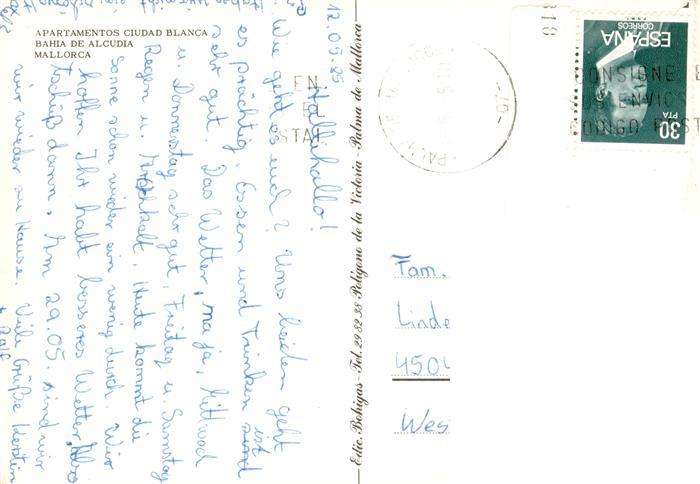 APARTAMENTOS CIUDAD BLANCA
BAHIA DE ALCUDIA
MALLORCA
12.05.85
Hallihallo!
Wie geht es euch? Uns beiden geht
es prächtig. Essen und Trinken sind
sehr gut. Das Wetter, na ja, Mittwoch
u. Donnerstag sehr gut, Freitag u. Samstag
Regen u. Heute kommt die
Sonne schon wieder ein wenig durch. Wir
hoffen Ihr habt besseres Wetter. Also
tschüß dann, Am 29.05. sind wir
wir wieder zu Hause. Viele Grüße Kerstin
+ Ralf
Edic. Bohigas - Tel. 29 82 38 Polígono de la Victoria - Palma de Mallorca
ESPAÑA
CORREOS
30
PTA
CONSIGNE E
SUS ENVIO
CODIGO POSTA
EN
STAL
Fam.
Linde
450
Wes